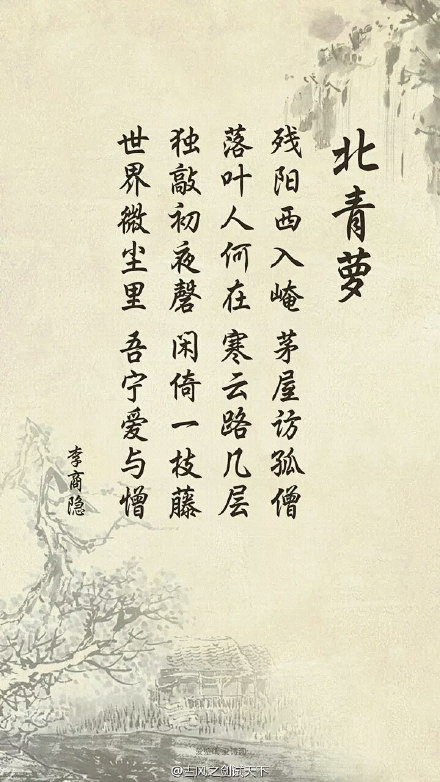 北青萝
残阳西入崦 茅屋访孤僧
落叶人何在 寒云路几层
独敲初夜磬 闲倚一枝藤
世界微尘里 吾宁爱与憎
李商隐